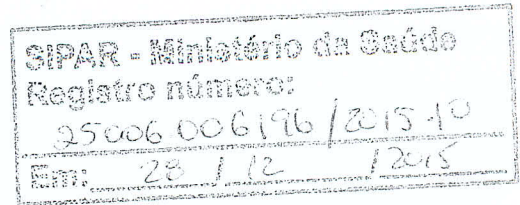 SIPAR - Ministério da Saúde
Registro número:
25006.006196/2015-10
Em: 28 / 12 / 2015